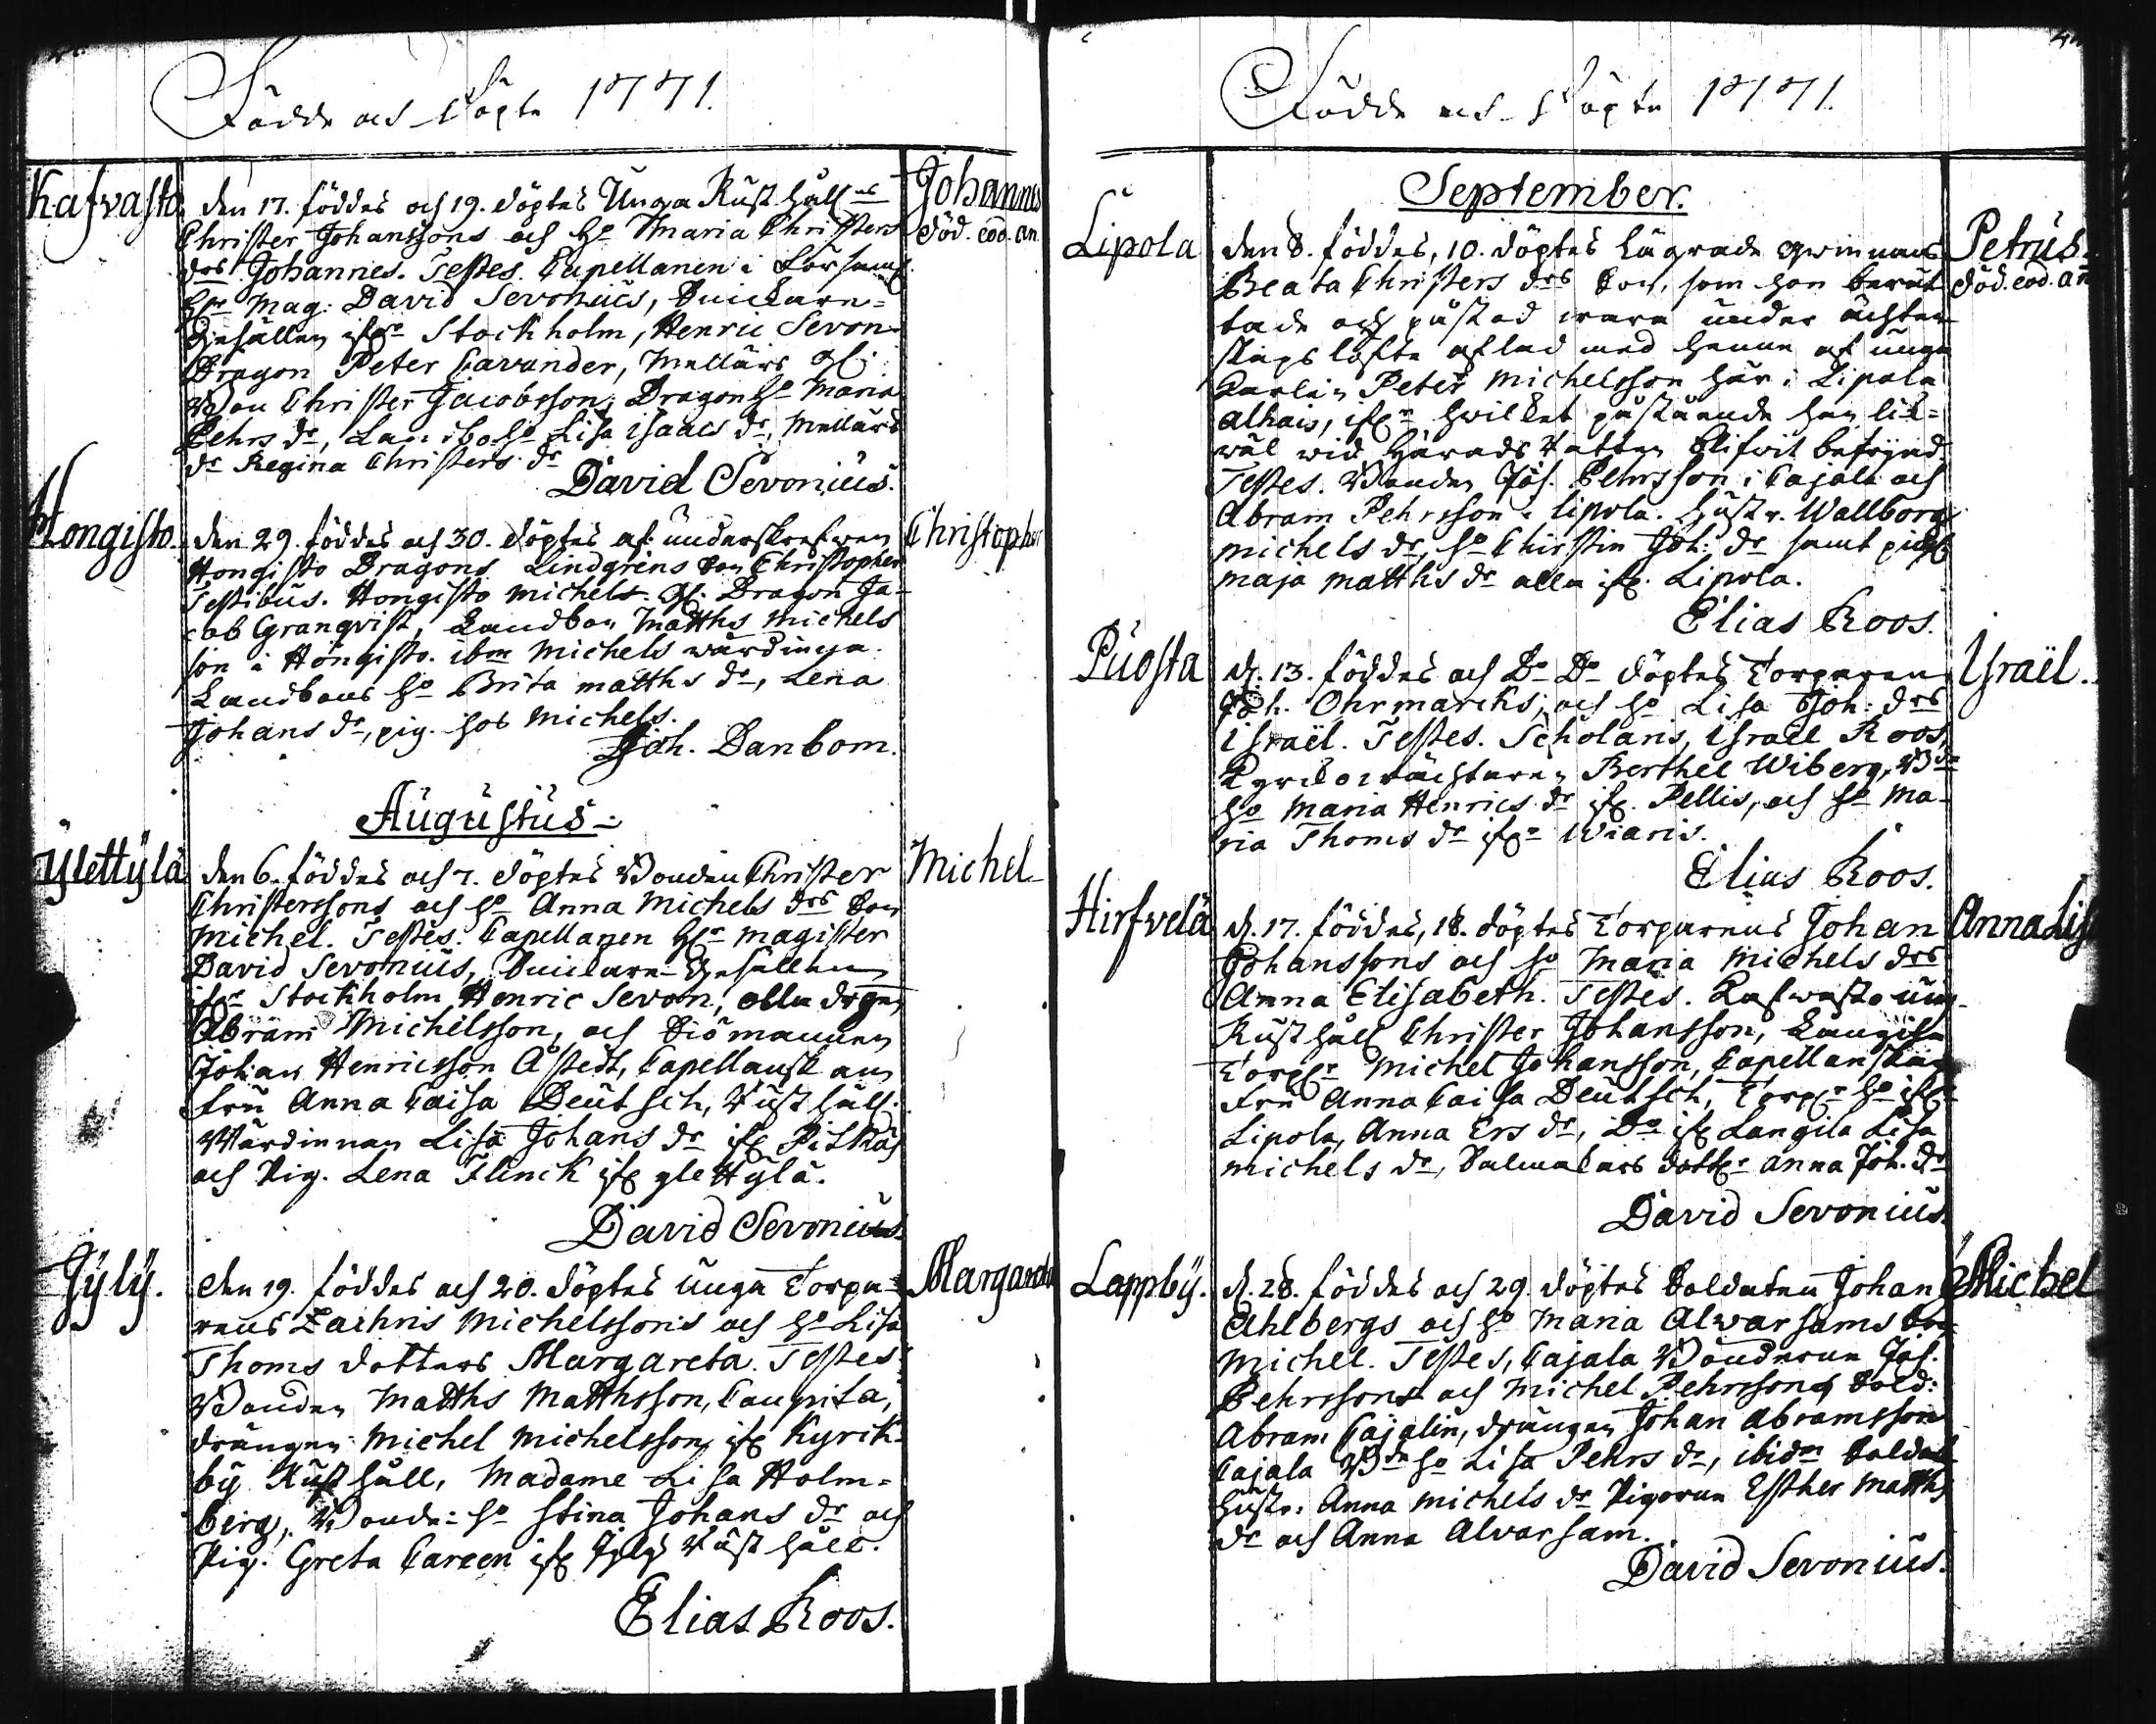 Födde och Döpte 1771.
Kafvasto
den 17. föddes och 19. döptes Unga Rusthåll:ns
Johannes
död. eod. an.
Christer Johanssons och ho Maria Christers
drs Johannes. Testes. Capellanen i Församl.
Hr Mag: David Sevonius,
Gesällen ifr Stockholm, Henric Sevon
Dragon Peter Cavander, Mellärs
Christer Jacobsson, Dragon ho Maria
Pehrs dr, Landbo ho Lisa Isaacs dr, Mellärs
dr Regina Christers dr
David Sevonius.
Hongisto.
den 29. föddes och 30. döptes af underskrefwen
Christopher
Hongisto Dragons Lindgrens Son Christopher
Testibus. Hongisto Michels Dragon Ja-
cob Granqvist, Landbon Matths Michels
son i Hongisto. ibm Michels wärdinna.
Landbons ho Brita Matths dr, Lena
Johans dr, pig. hos Michels.
Joh. Danbom.
Augustus
Ylettylä
den 6. föddes och 7. döptes Bonden Christer
Michel
Christerssons och ho Anna Michels drs Son
Michel. Testes. Capellanen Hr Magister
David Sevonius, Gesällen
ifr Stockholm Henric Sevon,
Abram Michelsson, och
Johan Henricsson Åstedt, Capellanskan
Fru Anna Caisa Deutsch, Rusthåll.
Wärdinnan Lisa Johans dr if. Pitkäs
och Pig. Lena Flinck if. ylettylä.
David Sevonius
Jyly.
den 19. föddes och 20. döptes unga Torpa-
Margareta
rens Zachris Michelssons och ho Lisa
Thoms dotters Margareta. Testes
Bonden Matths Matthsson, Caupila,
drängen Michel Michelsson if. Kyrck-
by Rusthåll, Madame Lisa Holm-
berg, Bonde: ho Stina Johans dr och
Pig. Greta Careen if. Jyly Rusthåll.
Elias Roos.
Födde och Döpte 1771.
September.
Lipola
den 8. föddes, 10. döptes Lägrade qwinnans
Petrus.
död. eod. an
Beata Christers drs Son, som hon berät-
tade och påstod wara under ächten-
skaps löfte aflad med henne af unga
Karlen Peter Michelsson här i Lipola
hwilket påstående han lik-
wäl wid Härads Rätten blifwit befryad.
Testes. Bonden Jos. Pehrsson i Cajala och
Abram Pehrsson i Lipola. Hustr. Wallborg
Michels dr, ho Christin Joh: dr samt pig.
Maja Matths dr alla if. Lipola.
Elias Roos.
Puosta
d. 13. föddes och Do Do döptes Torparen
Israël.
Joh. Ohrmarcks, och ho Lisa Joh: drs
Israël. Testes. Scholaris, Israel Roos,
Kyrckowächtaren Berthel Wiberg,
ho Maria Henrics dr if. Pellis, och ho Ma-
ria Thoms dr ifr Wiaris.
Elias Roos.
Hirfvelä
d. 17. föddes, 18. döptes Torparens Johan
Anna Lis
Johanssons och ho Maria Michels drs
Anna Elisabeth. Testes. Kafwasto ung.
Rusthåll. Christer Johansson,
Torp:r Michel Johansson, Capellanskan
Fru Anna Caisa Deutsch, Torp:r ho ifr
Lipola, Anna Ers dr, Do if. Langila Lisa
Michels dr, dotter Anna Joh. dr
David Sevonius.
Lappby.
d. 28. föddes och 29. döptes Soldaten Johan
Michel
Ahlbergs och ho Maria Alwarsams Son
Michel. Testes, Cajala Bönderne Jos.
Pehrssons och Michel Pehrssons Sold:
Abram Cajalin, drängen Johan Abramsson
Cajala ho Lisa Pehrs dr, ibidm Soldat
hustr: Anna Michels dr Pigorne Esther Matths
dr och Anna Alvarsam.
David Sevonius.